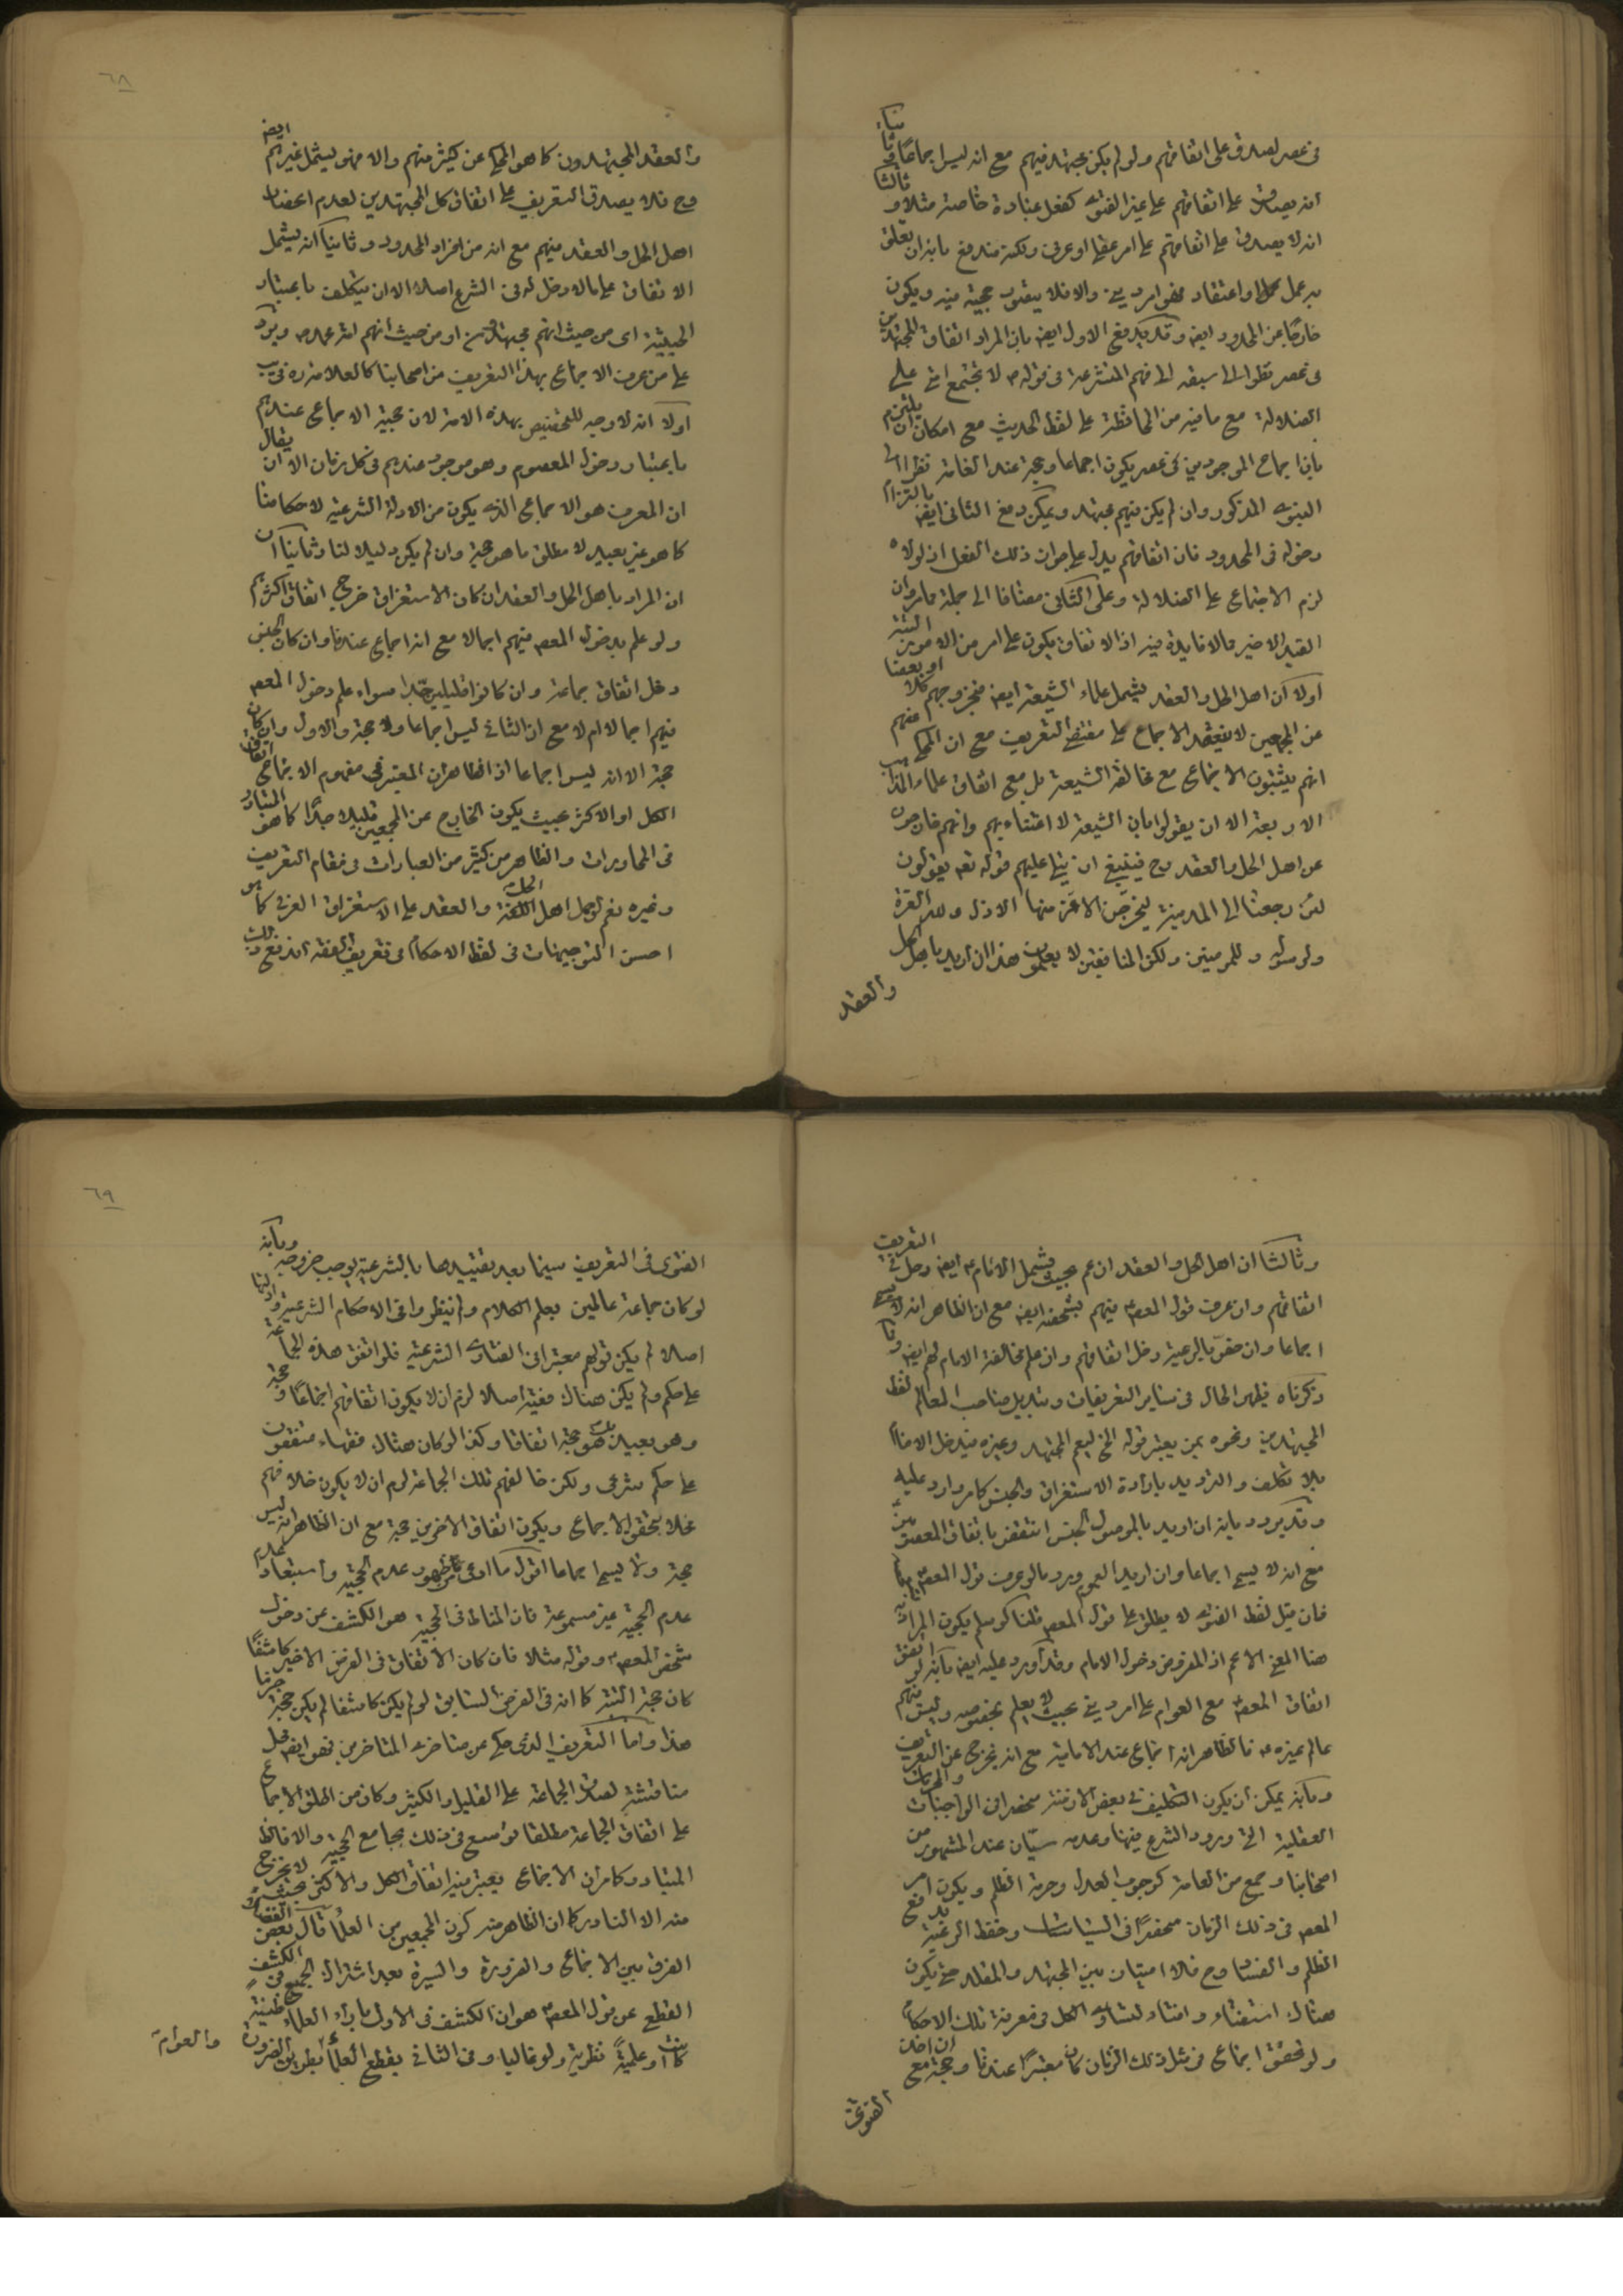 في عصر لصدق على اتفاقهم ولو لم يكن مجتهد فيهم مع انه ليس اجماعا
انه يصدق على اتفاقهم على غير الفتوى كفعل عبادة خاصة مثلا و ثالثا
انه لا يصدق على اتفاقهم على امر عقلي او عرفي ولكنه مندفع بانه ان تعلق
به عمل او اعتقاد فهو امر ديني والا فلا يتصور حجية فيه ويكون
خارجا عن المحدود ايضا وقد يدفع الاول ايضا بان المراد اتفاق المجتهدين
في عصر نظرا الى سبقه الى فهم المتشرعة في قوله لا تجتمع امتي على
الضلالة مع ما فيه من المحافظة على لفظ الحديث مع امكان ان يلتزم
بان اجماع الموجودين في عصر يكون اجماعا وحجة عند العامة نظرا الى
النبوي المذكور وان لم يكن فيهم مجتهد ويمكن دفع الثاني ايضا بالتزام
دخوله في المحدود فان اتفاقهم يدل على جواز ذلك الفعل اذ لولاه
لزم الاجتماع على الضلالة وعلى الثاني مضافا الى جملة مامر ان
القيد الاخير مالا فايدة فيه اذ الاتفاق يكون على امر من الامور البتة
اولا ان اهل الحل والعقد يشمل علماء الشيعة ايضا فبخروجهم كلا او بعضا
عن المجمعين لا ينعقد الاجماع على مقتضى التعريف مع ان المحكي عنهم
انهم يثبتون الاجماع مع مخالفة الشيعة بل مع اتفاق علماء المذاهب
الاربعة الا ان يقولوا بان الشيعة لا اعتناء بهم وانهم خارجون
عن اهل الحل والعقد وح فينبغي ان يتلى عليهم قوله تعالى يقولون
لئن رجعنا الى المدينة ليخرجن الاعز منها الاذل ولله العزة
ولرسوله وللمومنين ولكن المنافقين لا يعلمون هذا ان اريد باهل الحل
والعقد
٦٨
والعقد المجتهدون كما هو المحكي عن كثير منهم والا فهو يشمل غيرهم ايضا
وح فلا يصدق التعريف على اتفاق كل المجتهدين لعدم انحصار
اهل الحل والعقد فيهم مع انه من افراد المحدود وثانيا انه يشمل
الاتفاق على مالا دخل له في الشرع اصلا الا ان يتكلف باعتبار
الحيثية اى من حيث انهم مجتهدون او من حيث انهم امة محمد ص ويرد
على من عرف الاجماع بهذا التعريف من اصحابنا كالعلامة ره في يب
اولا انه لا وجه للتخصيص بهذه الامة لان حجية الاجماع عندهم
باعتبار دخول المعصوم وهو موجود عندهم في كل زمان الا ان يقال
ان المعرف هو الاجماع الذي يكون من الادلة الشرعية لاحكامنا
كما هو غير بعيد لا مطلق ما هو حجة وان لم يكن دليلا لنا وثانيا ان
ان المراد باهل الحل والعقد ان كان الاستغراق خرج اتفاق اكثرهم
ولو علم بدخول المعصوم فيهم اجمالا مع انه اجماع عندنا وان كان الجنس
دخل اتفاق جماعة وان كانوا قليلين جدا سواء علم دخول المعصوم
فيهم اجمالا ام لا مع ان الثاني ليس اجماعا ولا حجة والاول وان كان
حجة الا انه ليس اجماعا اذ الظاهر ان المعتبر في مفهوم الاجماع اتفاق
الكل او الاكثر بحيث يكون الخارج عن المجمعين قليلا جدا كما هو المتبادر
في المحاورات والظاهر من كثير من العبارات في مقام التعريف
وغيره نعم لو حمل اهل الحل والعقد على الاستغراق العرفي كما هو
احسن التوجيهات في لفظ الاحكام في تعريف الفقه اندفع ذلك
وثالثا ان اهل الحل والعقد ان عم بحيث يشمل الامام ع ايضا دخل في التعريف
اتفاقهم وان عرف قول المعصوم فيهم بشخصه ايضا مع ان الظاهر انه لا يسمى
اجماعا وان خص بالرعية دخل اتفاقهم وان علم مخالفة الامام لهم ايضا
ذكرناه فظهر الحال في ساير التعريفات وتبديل صاحب المعالم لفظ
المجتهدين ونحوه بمن يعتبر قوله الخ ليعم المجتهد وغيره فيدخل الامام
بلا تكلف والترديد بارادة الاستغراق والجنس كما مر وارد عليه
وقد يورد بانه ان اريد بالموصول الجنس انتقض باتفاق المعصومين
مع انه لا يسمى اجماعا وان اريد العموم ورد ما لو عرف قول المعصوم
فان قيل لفظ الفتوى لا يطلق على قول المعصوم قلنا لو سلم يكون المراد به
هنا المعنى الاعم اذ المفروض دخول الامام وقد اورد عليه ايضا بانه لو اتفق
اتفاق المعصوم مع العوام على امر ديني بحيث لا يعلم بخصوصه وليس فيهم
عالم غيره ع فالظاهر انه اجماع عند الامامية مع انه يخرج عن التعريف
وبانه يمكن ان يكون التكليف في بعض الازمنة منحصرا في الواجبات والمحرمات
العقلية التي ورود الشرع فيها وعدمه سيان عند المشهور من
اصحابنا وجمع من العامة كوجوب العدل وحرمة الظلم ويكون امر
المعصوم في ذلك الزمان منحصرا في السياسات وحفظ الرعية بدفع
الظلم والفساد وح فلا امتياز بين المجتهد والمقلد حتى يكون
هناك استفتاء وافتاء لتساوى الكل في معرفة تلك الاحكام
ولو تحقق اجماع في مثل ذلك الزمان كان معتبرا عندنا وحجة مع ان اخذ
الفتوى
٦٩
الفتوى في التعريف سيما بعد تقييدها بالشرعية يوجب خروجه وبانه
لو كان جماعة عالمين بعلم الكلام ولم ينظروا في الاحكام الشرعية وادلتها
اصلا لم يكن قولهم معتبرا في الفتاوى الشرعية فلو اتفق هذه الجماعة
على حكم ولم يكن هناك فقيه اصلا لزم ان لا يكون اتفاقهم اجماعا و حجة
وهو بعيد بل هو حجة اتفاقا وكذا لو كان هناك فقهاء متفقون
على حكم شرعي ولكن خالفهم تلك الجماعة لزم ان لا يكون خلافهم
مخلا بتحقق الاجماع ويكون اتفاق الاخرين حجة مع ان الظاهر انه ليس
حجة ولا يسمى اجماعا اقول ما ادعى من ظهور عدم الحجية واستبعاد
عدم الحجية غير مسموعة فان المناط في الحجية هو الكشف عن دخول
شخص المعصوم وقوله مثلا فان كان الاتفاق في الفرض الاخير كاشفا
كان حجة البتة كما انه في الفرض السابق لو لم يكن كاشفا لم يكن حجة جزما
هذا واما التعريف الذي حكي عن متاخري المتاخرين فهو ايضا محل
مناقشة لصدق الجماعة على القليل والكثير وكان من اطلق الاجماع
على اتفاق الجماعة مطلقا توسع في ذلك بجامع الحجية والا فالظ
المتبادر كما مر ان الاجماع يعتبر فيه اتفاق الكل والاكثر بحيث لا يخرج
منه الا النادر كما ان الظاهر منه كون المجمعين من العلماء قال بعض الفضلاء
الفرق بين الاجماع والضرورة والسيرة بعد اشتراك الجميع في الكشف
القطع عن قول المعصوم هو ان الكشف في الاول باراء العلماء ظنية
كانت او علمية نظرية ولو غالبا وفي الثاني بقطع العلماء بطريق الضرورة
والعوام